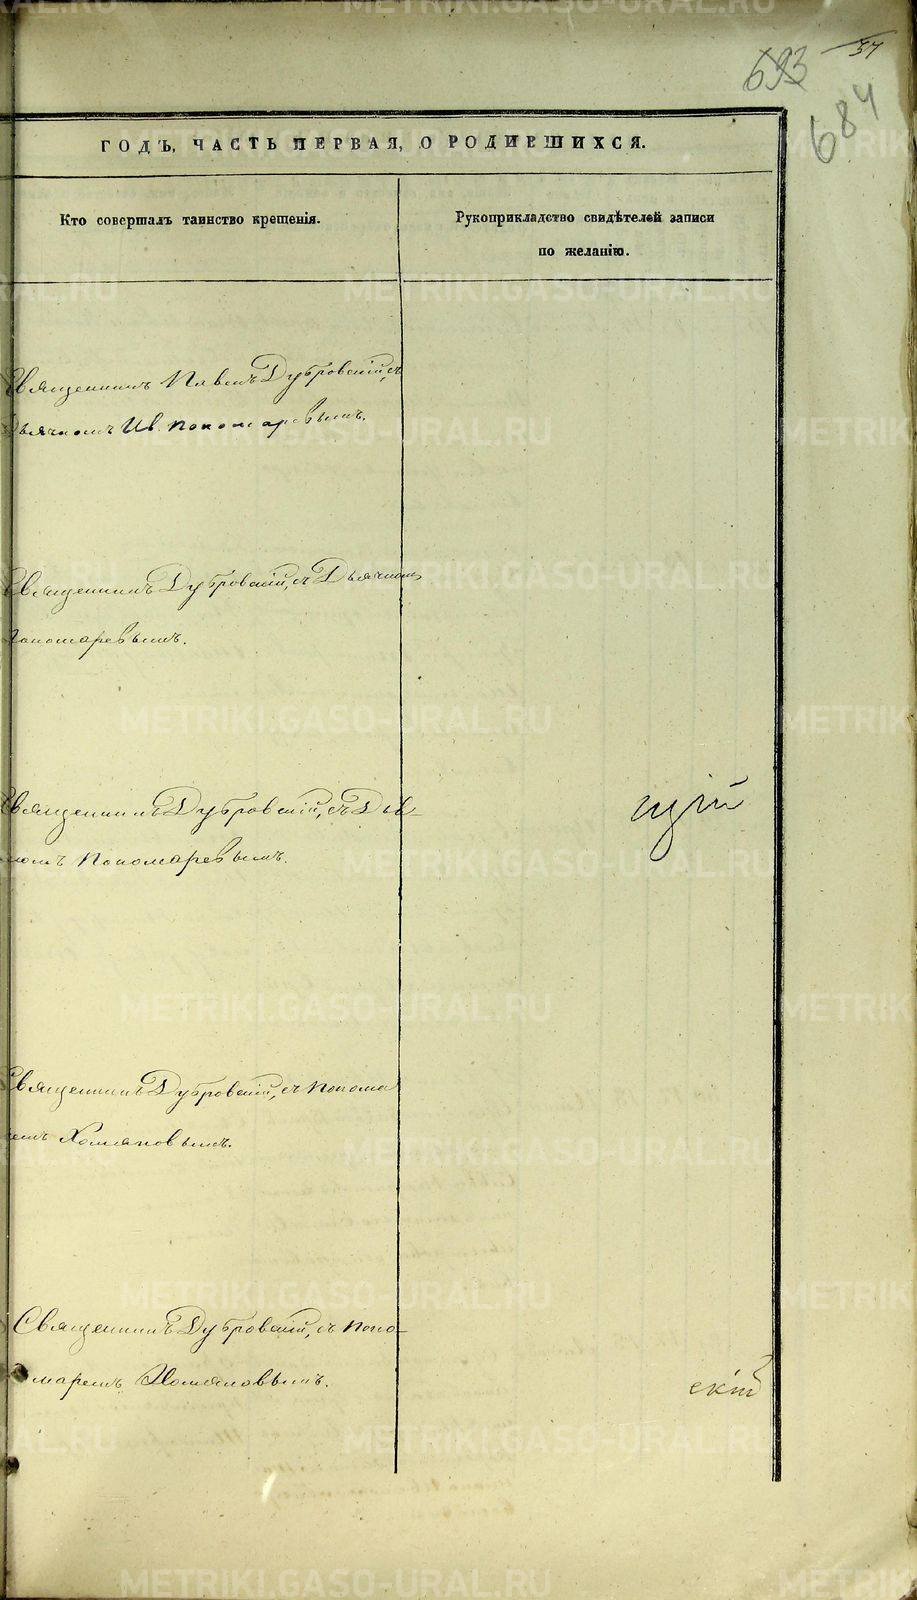 693 57
684
ГОДЪ, ЧАСТЬ ПЕРВАЯ, О РОДИВШИХСЯ.
Кто совершалъ таинство крещенія.
Рукоприкладство свидѣтелей записи
по желанію.
Священникъ Павелъ Дубровскій, съ
Дьячкомъ Ив. Пономаревымъ.
Священникъ Дубровскій, съ Дьячкомъ
Пономаревымъ.
Священникъ Дубровскій, съ Дья-
комъ Пономаревымъ.
цій
Священникъ Дубровскій, съ Понома
ремъ Хомяковымъ.
Священникъ Дубровскій, съ Поно-
маремъ Хомяковымъ.
скій
METRIKI.GASO-URAL.RU